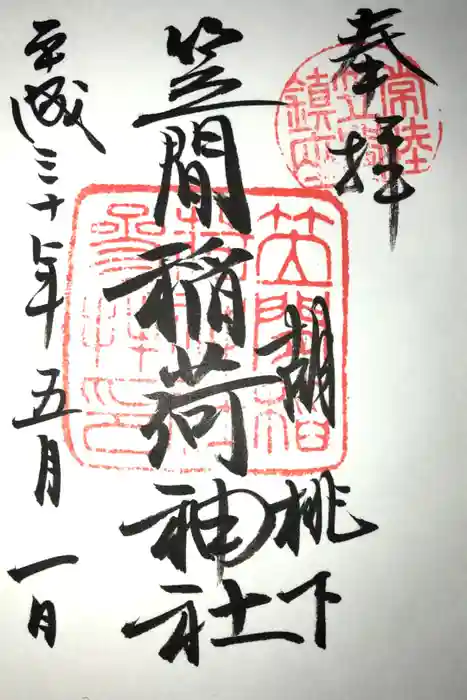 奉拝
常陸
笠間
鎮座
胡桃下
笠間稲
笠間稲荷神社
平成三十年五月一日